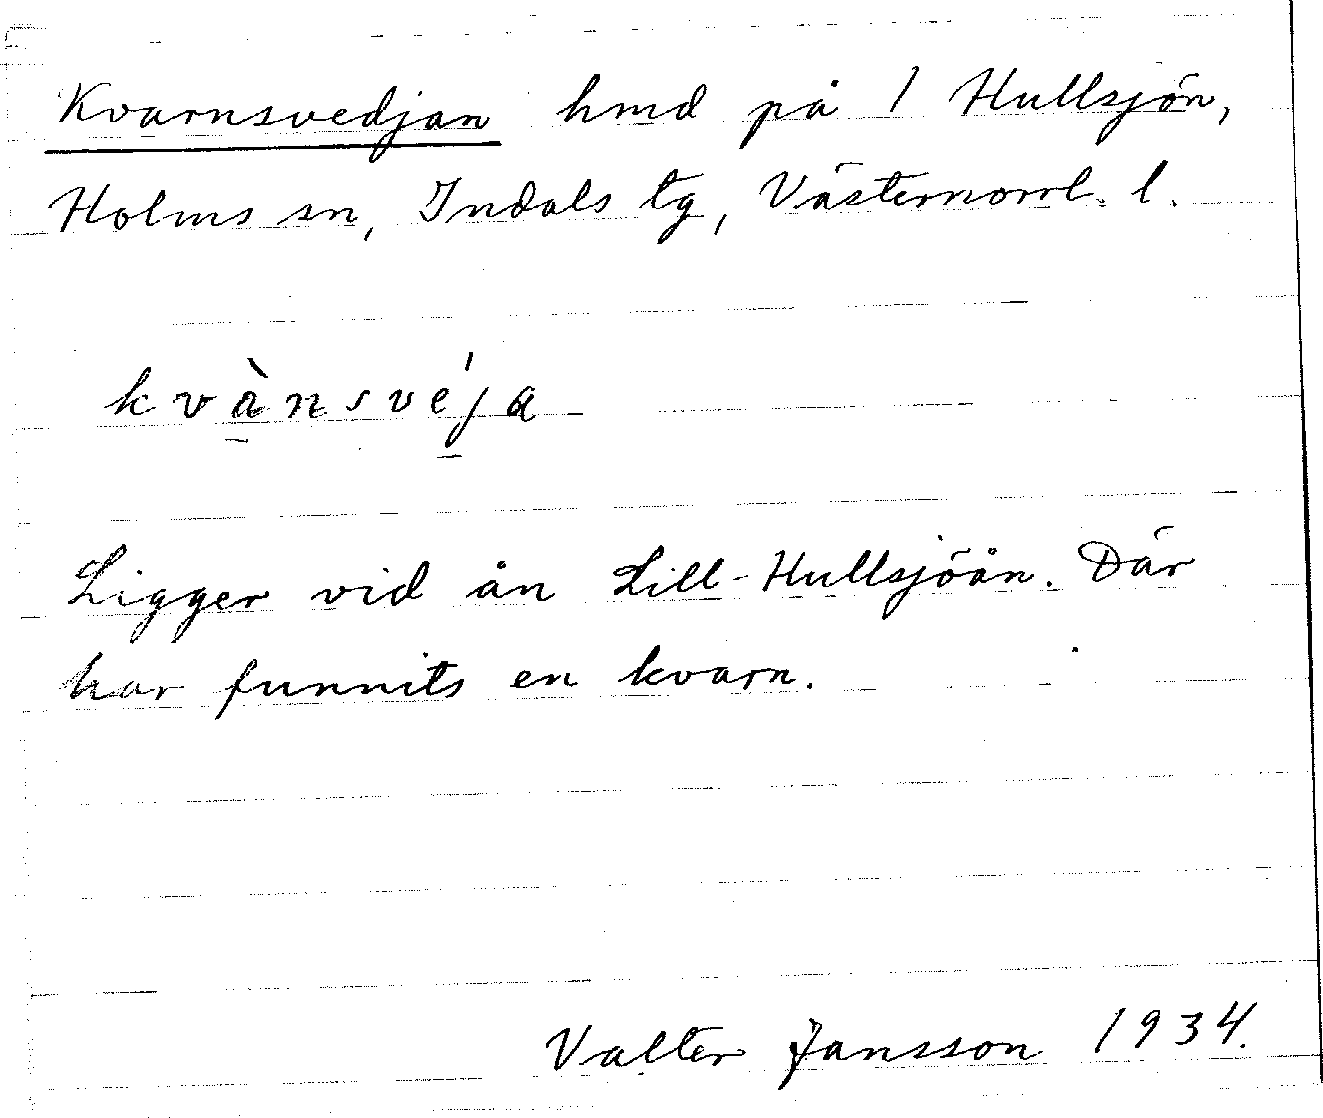 Kvarnsvedjan hmd på 1 Hullsjön,
Holms sn, Indals tg, Västernorrl. l.
kvànsvéja
Ligger vid ån Lill-Hullsjöån. Där
har funnits en kvarn.
Valter Jansson 1934.